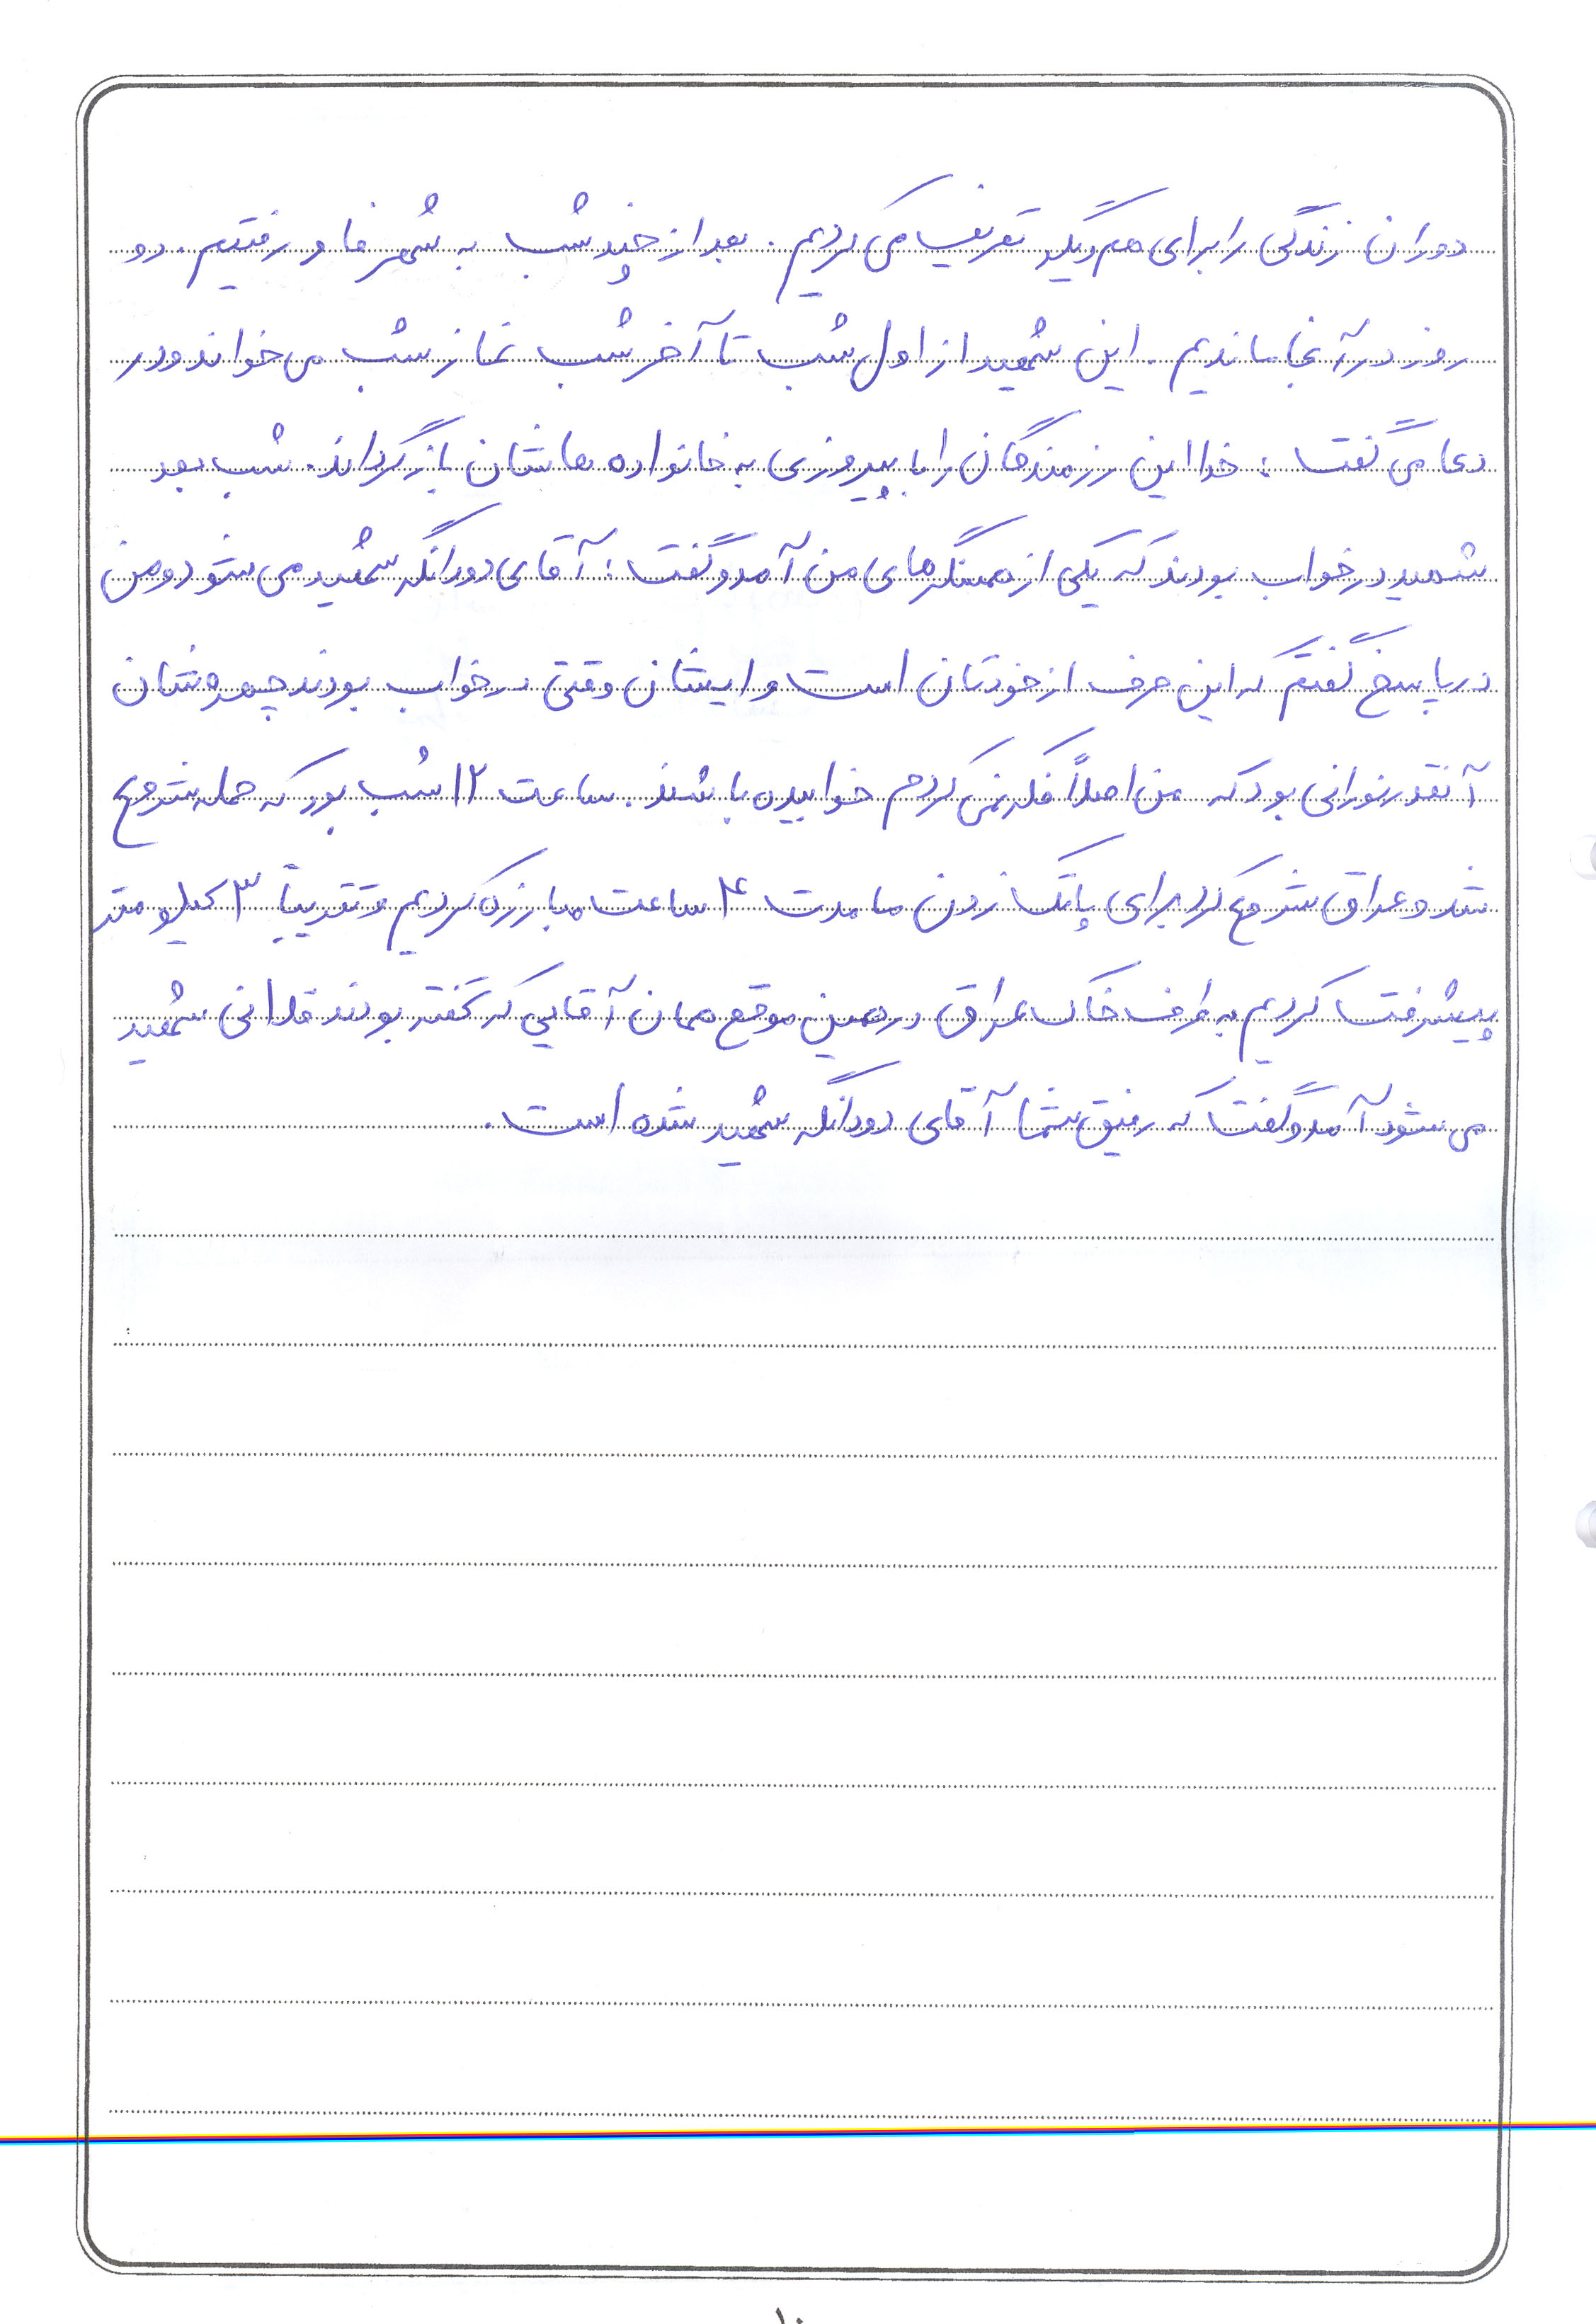 دوران زندگی را برای هم دیگر تعریف می کردیم. بعد از چند شب به شهر فاو رفتیم. دو
روز در آنجا ماندیم. این شهید از اول شب تا آخر شب نماز شب می خواند و در
دعا می گفت: خدا این رزمندگان را با پیروزی به خانواده هاشان بازگرداند. شب بعد
شهید در خواب بودند که یکی از همسنگرهای من آمد و گفت: آقای دورانگر شهید می شود و من
در پاسخ گفتم که این حرف از خودتان است و ایشان وقتی در خواب بودند چهره شان
آنقدر نورانی بود که من اصلاً فکر نمی کردم خوابیده باشند. ساعت ۱۲ شب بود که حمله شروع
شد و عراق شروع کرد برای پاتک زدن ما مدت ۴ ساعت مبارزه کردیم و تقریباً ۳ کیلومتر
پیشرفت کردیم به طرف خاک عراق در همین موقع همان آقایی که گفته بودند فلانی شهید
می شود آمد و گفت که رفیق شما آقای دورانگر شهید شده است.
۱۰